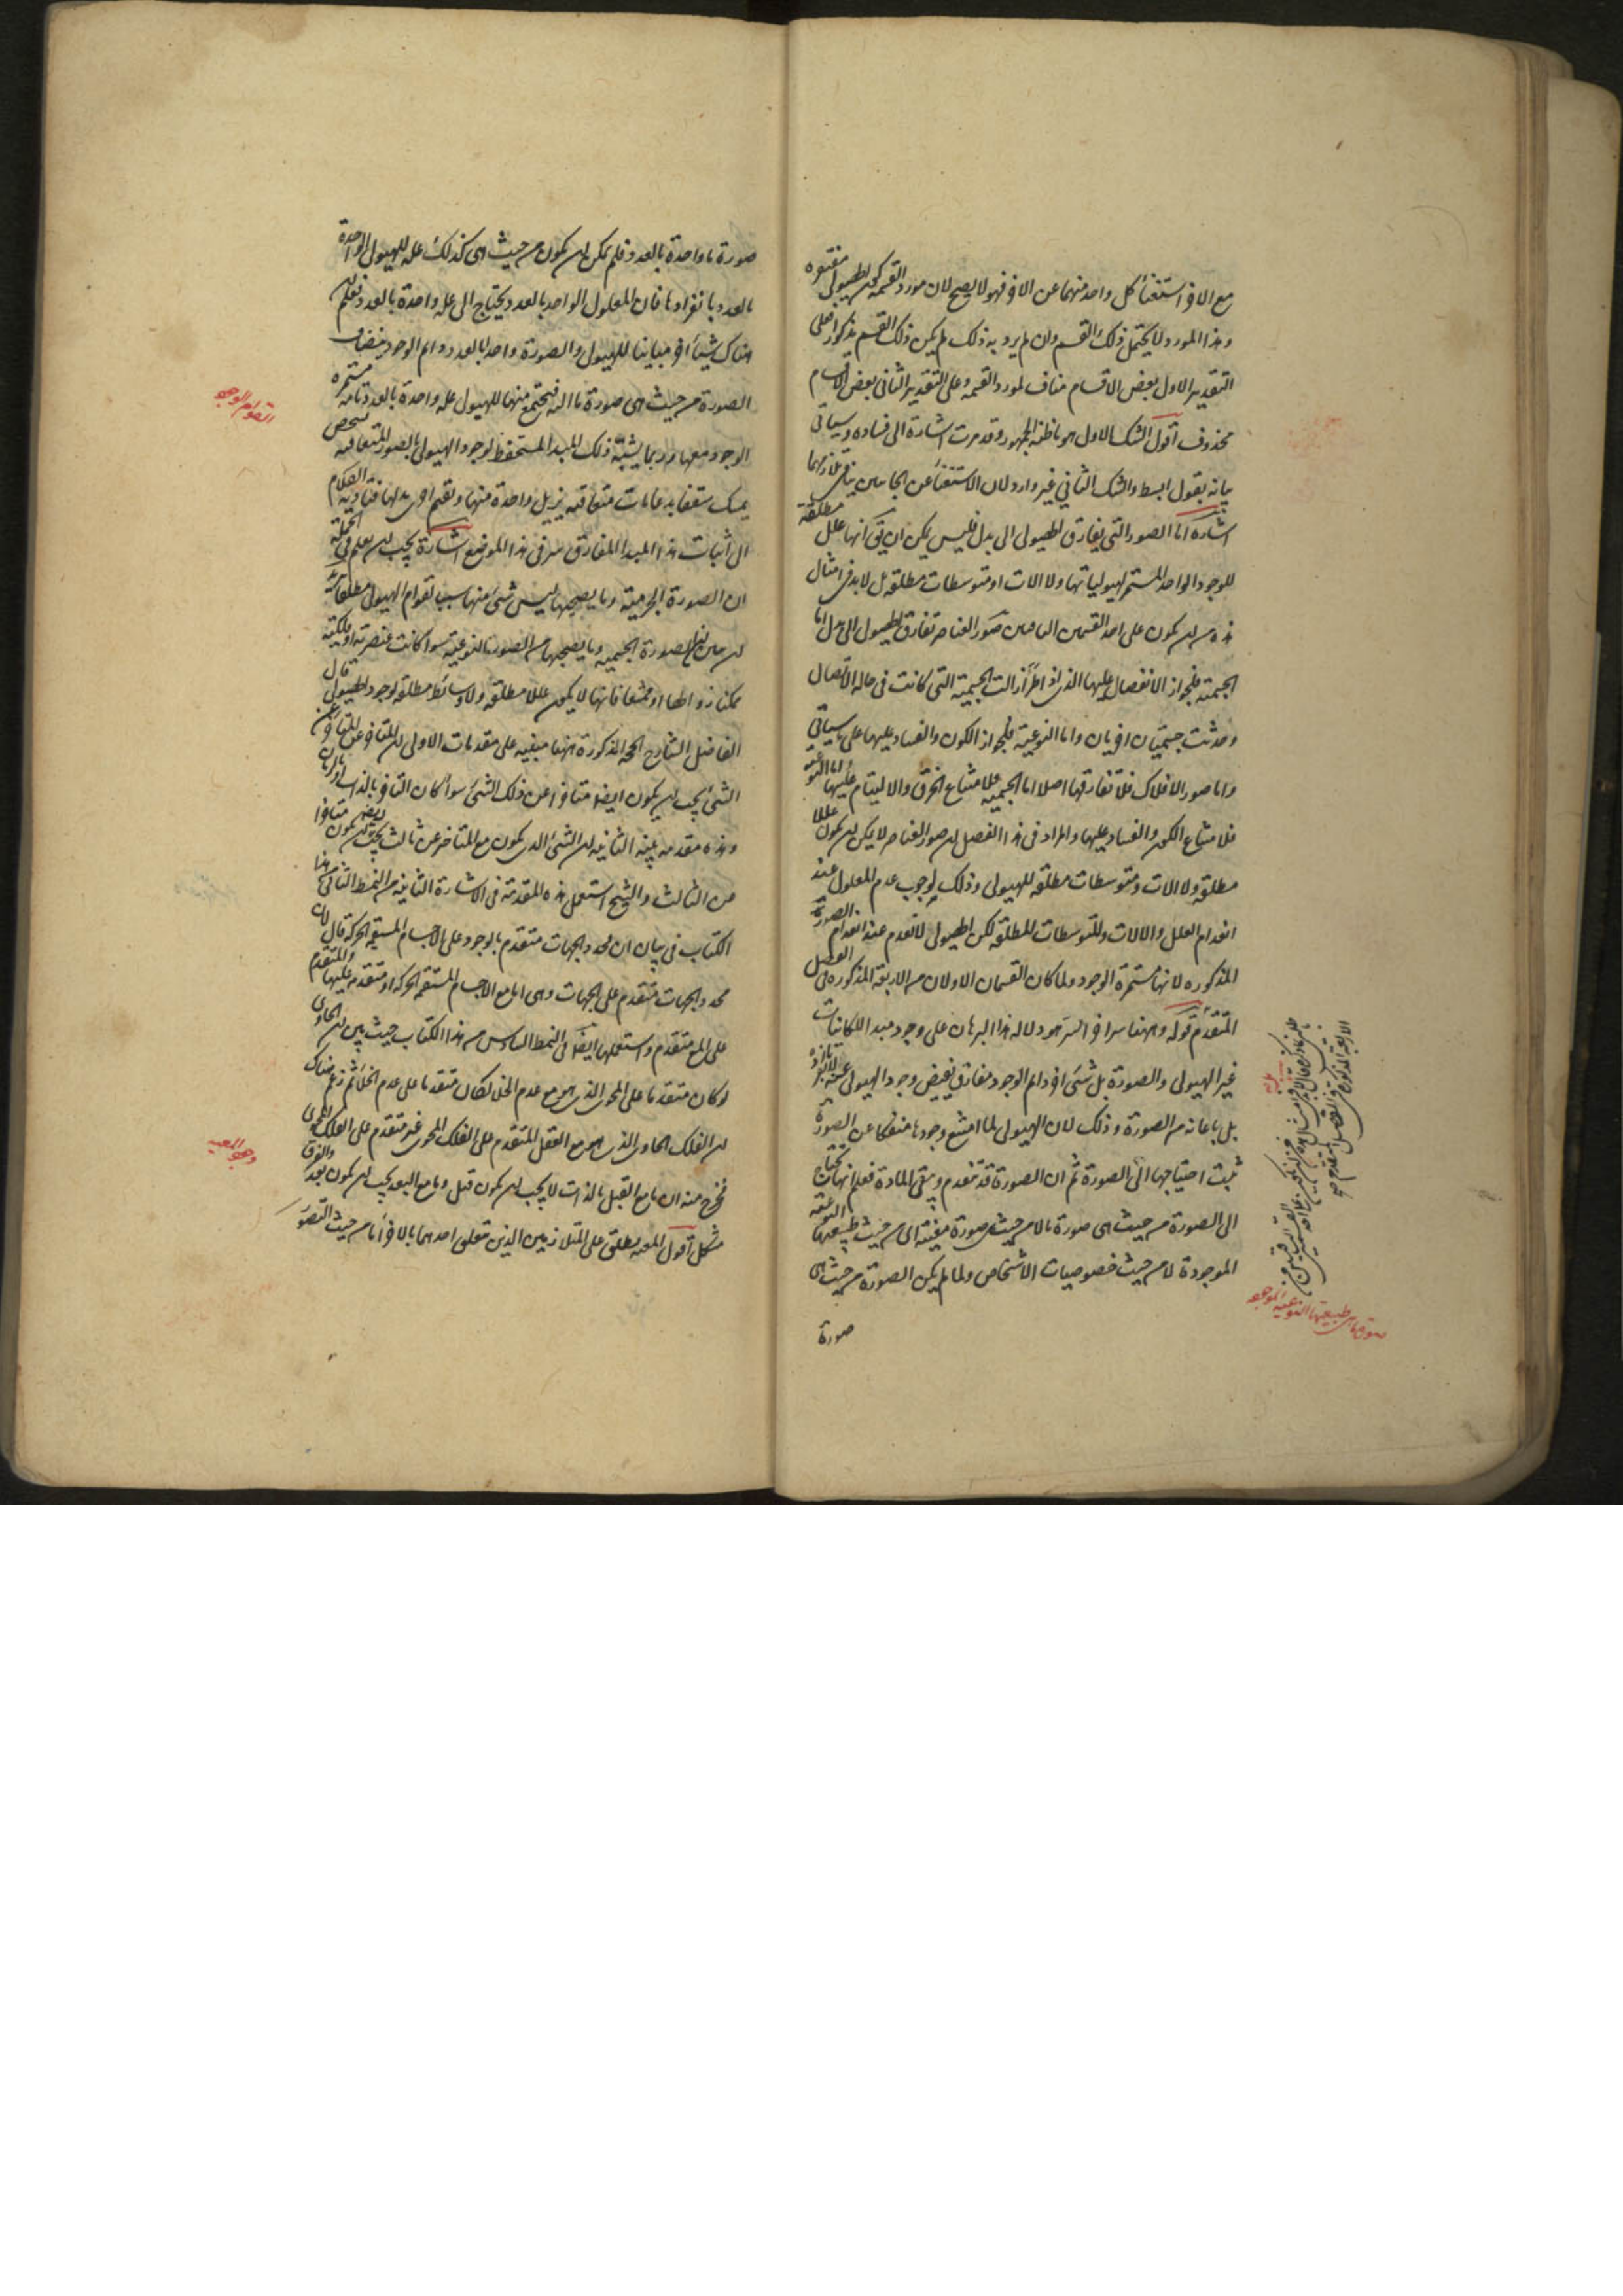 مع الاخر استغناء كل واحد منهما عن الاخر فهو لا يصح لان مورد القسمة كون الهيولى مفتقرة
وهذا المورد لا يحتمل ذلك القسم وان لم يرد به ذلك لم يكن ذلك القسم مذكورا فعلى
التقدير الاول بعض الاقسام مناف لمورد القسمة وعلى التقدير الثانى بعض الاقسام
محذوف اقول الشك الاول هو ما ظنه الجمهور وقد مرت اشارة الى فساده وسياتى
بيانه بقول ابسط والشك الثانى غير وارد لان الاستغناء عن الجانبين ينافى تلازمهما
اشارة اما الصور التى يفارق الهيولى الى بدل فليس يمكن ان يق انها علل مطلقة
للوجود الواحد المستمر لهيولياتها ولا الات او متوسطات مطلقة بل لابد فى امثال
هذه من ان يكون على احد القسمين الباقيين صور العناصر تفارق الهيولى الى بدل اما
الجسمية فلجواز الانفصال عليها الذى اذا طرأ زالت الجسمية التى كانت فى حالة الاتصال
وحدثت جسميتان اخريان واما النوعية فلجواز الكون والفساد عليها على ما سياتى
واما صور الافلاك فلا تفارقها اصلا اما الجسمية فلامتناع الخرق والالتيام عليها اما النوعية
فلامتناع الكون والفساد عليها والمراد فى هذا الفصل ان صور العناصر لا يمكن ان يكون عللا
مطلقة ولا الات ومتوسطات مطلقة للهيولى وذلك لوجوب عدم المعلول عند
انعدام العلل والالات والمتوسطات المطلقة لكن الهيولى لا تعدم عند انعدام الصورة
المذكورة لانها مستمرة الوجود ولما كان القسمان الاولان من الاربعة المذكورة فى الفصل
المتقدم قوله وههنا سر اخر السر هو دلالة هذا البرهان على وجود مبدا للكائنات
غير الهيولى والصورة بل شىء اخر دائم الوجود مفارق يفيض وجود الهيولى عنه لا بانفراده
بل باعانة من الصورة وذلك لان الهيولى لما امتنع وجودها منفكا عن الصورة
ثبت احتياجها الى الصورة ثم ان الصورة قد تنعدم ويبقى المادة فعلم انها تحتاج
الى الصورة من حيث هى صورة ما لا من حيث هى صورة معينة اى من حيث طبيعتها النوعية
الموجودة لا من حيث خصوصيات الاشخاص ولما لم يكن الصورة من حيث هى
صورة
صورة ما واحدة بالعدد فلم يمكن ان يكون من حيث هى كذلك علة للهيولى الواحدة
بالعدد بانفرادها فان المعلول الواحد بالعدد يحتاج الى علة واحدة بالعدد فعلم ان
هناك شيئا اخر مباينا للهيولى والصورة واحدا بالعدد دوائم الوجود ينضاف
الصورة من حيث هى صورة ما اليه فيجتمع منهما للهيولى علة واحدة بالعدد تامة مستمرة
الوجود معها وربما يشبه ذلك المبدا المستحفظ لوجود الهيولى بالصور المتعاقبة بشخص
يمسك سقفا بدعامات متعاقبة يزيل واحدة منها ويقيم اخرى بدلها فتادية الكلام
الى اثبات هذا المبدا المفارق سر فى هذا الموضع اشارة يجب ان يعلم فى الجملة
ان الصورة الجرمية وما يصحبها ليس شىء منها سببا لقوام الهيولى مطلقا
ان بين ان الصورة الجسمية وما يصحبها من الصور النوعية سوا كانت عنصرية او فلكية
ممكنا زوالها او ممتنعا فانها لا يكون عللا مطلقة ولا وسائط مطلقة لوجود الهيولى قال
الفاضل الشارح الحجة المذكورة ههنا مبنية على مقدمات الاولى ان المتاخر عن المتاخر عن
الشىء يجب ان يكون ايضا متاخرا عن ذلك الشىء سوا كان التاخر بالذات او بالزمان
وهذه مقدمة بينة الثانية ان الشىء الذى يكون مع المتاخر عن ثالث يجب ان يكون ايضا متاخرا
عن الثالث والشيخ استعمل هذه المقدمة فى الاشارة الثانية من النمط الثانى من هذا
الكتاب فى بيان ان محدد الجهات متقدم بالوجود على الاجسام المستقيمة الحركة قال لان
محدد الجهات متقدم على الجهات وهى اما مع الاجسام المستقيمة الحركة او متقدمة عليها والمتقدم
على المع متقدم واستعملها ايضا فى النمط السادس من هذا الكتاب حيث بين ان الحاوى
لو كان متقدما على المحوى الذى هو مع عدم الخلا لكان متقدما على عدم الخلا ثم زعم هناك
ان الفلك الحاوى الذى هو مع العقل المتقدم على الفلك المحوى غير متقدم على الفلك المحوى
فخرج منه ان ما مع القبل بالذات لا يجب ان يكون قبل وما مع البعد يجب ان يكون بعد والفرق
مشكل اقول المعية يطلق على المتلازمين الذين يتعلق احدهما بالاخر اما من حيث التصور